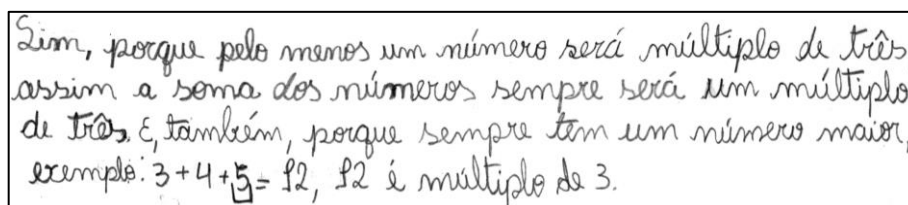 Sim, porque pelo menos um número será múltiplo de três
assim a soma dos números sempre será um múltiplo
de três. E, também, porque sempre tem um número maior,
exemplo: 3+4+5= 12, 12 é múltiplo de 3.